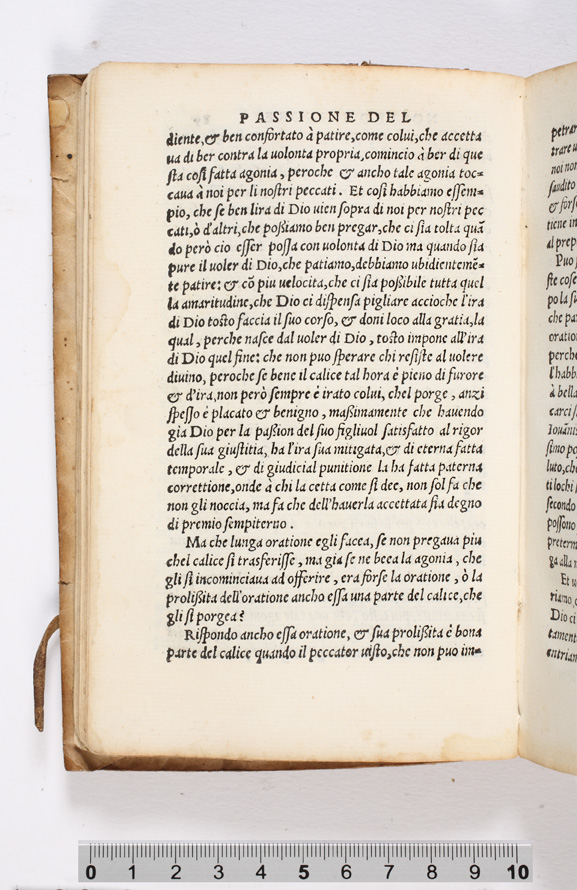 PASSIONE DEL
diente, & ben confortato à patire, come colui, che accetta
ua di ber contra la uolonta propria, comincio à ber di que
sta così fatta agonia, peroche & ancho tale agonia toc-
caua à noi per li nostri peccati. Et così habbiamo essem-
pio, che se ben lira di Dio uien sopra di noi per nostri pec
cati, ò d'altri, che possiamo ben pregar, che ci sia tolta quã
do però cio esser possa con uolonta di Dio ma quando sia
pure il uoler di Dio, che patiamo, debbiamo ubidientemẽ-
te patire: & cõ piu uelocita, che ci sia possibile tutta quel
la amaritudine, che Dio ci dispensa pigliare accioche l'ira
di Dio tosto faccia il suo corso, & doni loco alla gratia, la
qual, perche nasce dal uoler di Dio, tosto impone all'ira
di Dio quel fine: che non puo sperare chi resiste al uolere
diuino, peroche se bene il calice tal hora è pieno di furore
& d'ira, non però sempre è irato colui, chel porge, anzi
spesso è placato & benigno, massimamente che hauendo
gia Dio per la passion del suo figliuol satisfatto al rigor
della sua giustitia, ha l'ira sua mitigata, & di eterna fatta
temporale, & di giudicial punitione la ha fatta paterna
correttione, onde à chi la cetta come si dee, non sol fa che
non gli noccia, ma fa che dell'hauerla accettata sia degno
di premio sempiterno.
Ma che lunga oratione egli facea, se non pregaua piu
chel calice si trasferisse, ma gia se ne beea la agonia, che
gli si incominciaua ad offerire, era forse la oratione, ò la
prolissita dell'oratione ancho essa una parte del calice, che
gli si porgea?
Rispondo ancho essa oratione, & sua prolissita è bona
parte del calice quando il peccator uisto, che non puo im-
petrar
trare
noi non
sandito
& forse
tiene in
al prep
Puo
ste cose
po la su
che pa
oratio
perche
l'habb
à bella
carci
simo po
luto, che
ti lochi
secondo
possono
preterm
ga alla
Et
riamo
Dio ci
tament
entrian
0 1 2 3 4 5 6 7 8 9 10